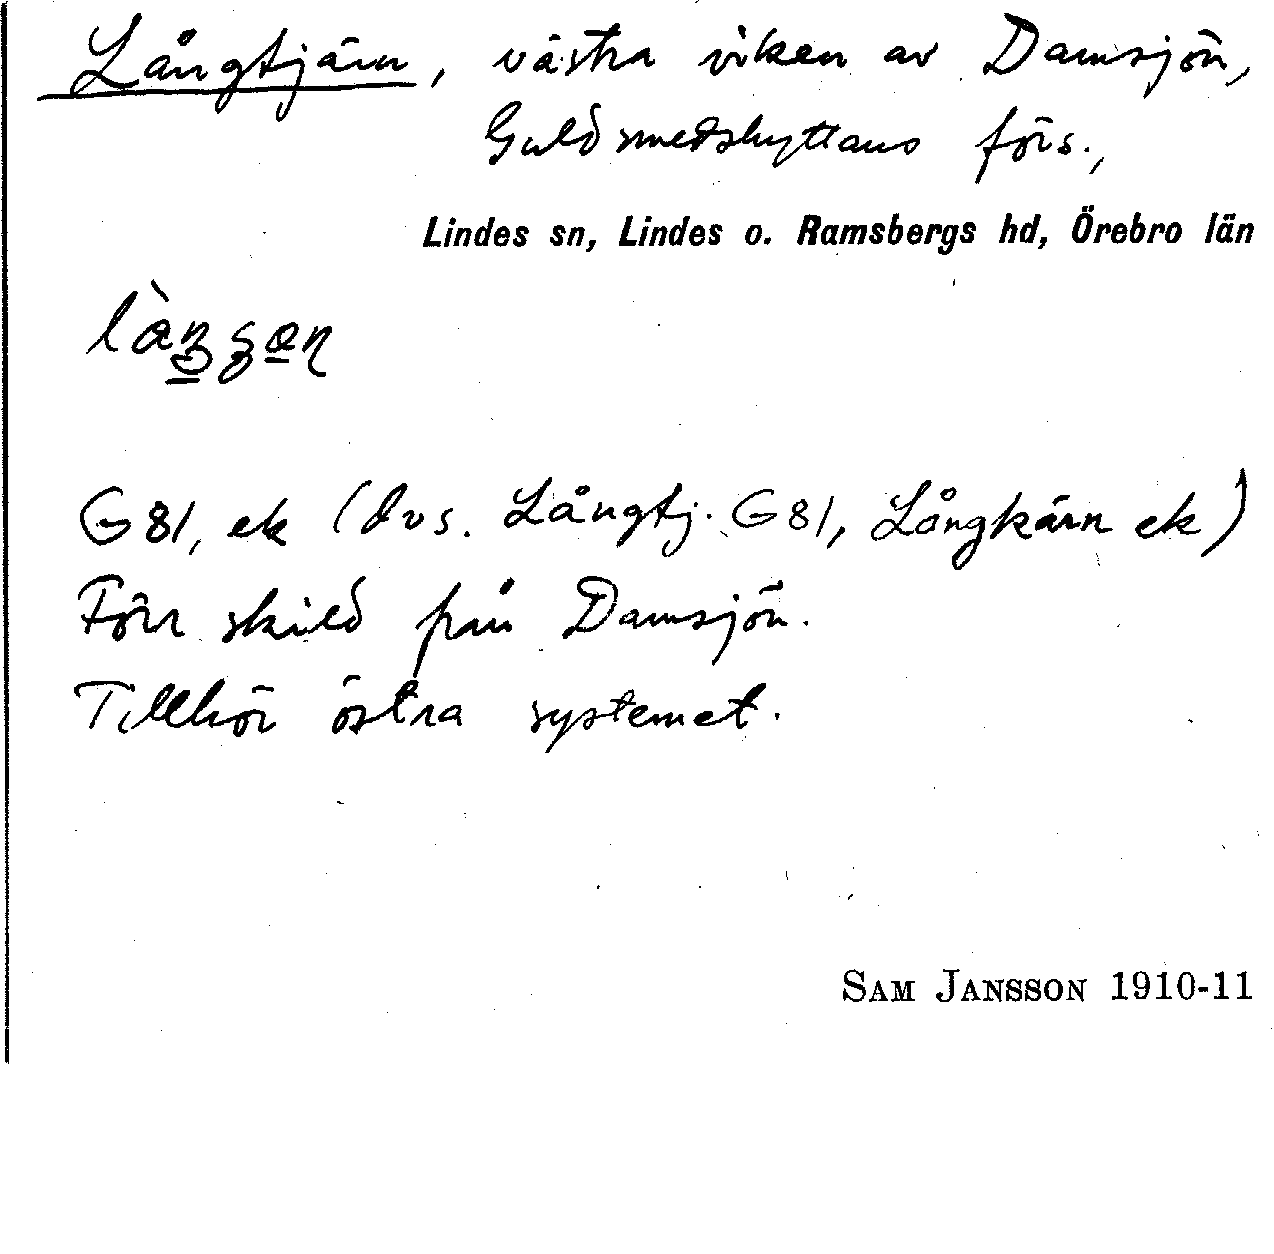 Långtjärn, västra viken av Damsjön,
Guldsmedshyttans förs.,
Lindes sn, Lindes o. Ramsbergs hd, Örebro län
G 81, ek (dvs. Långtj. G 81, Långkärn ek)
Förr skild från Damsjön.
Tillhör östra systemet.
SAM JANSSON 1910-11